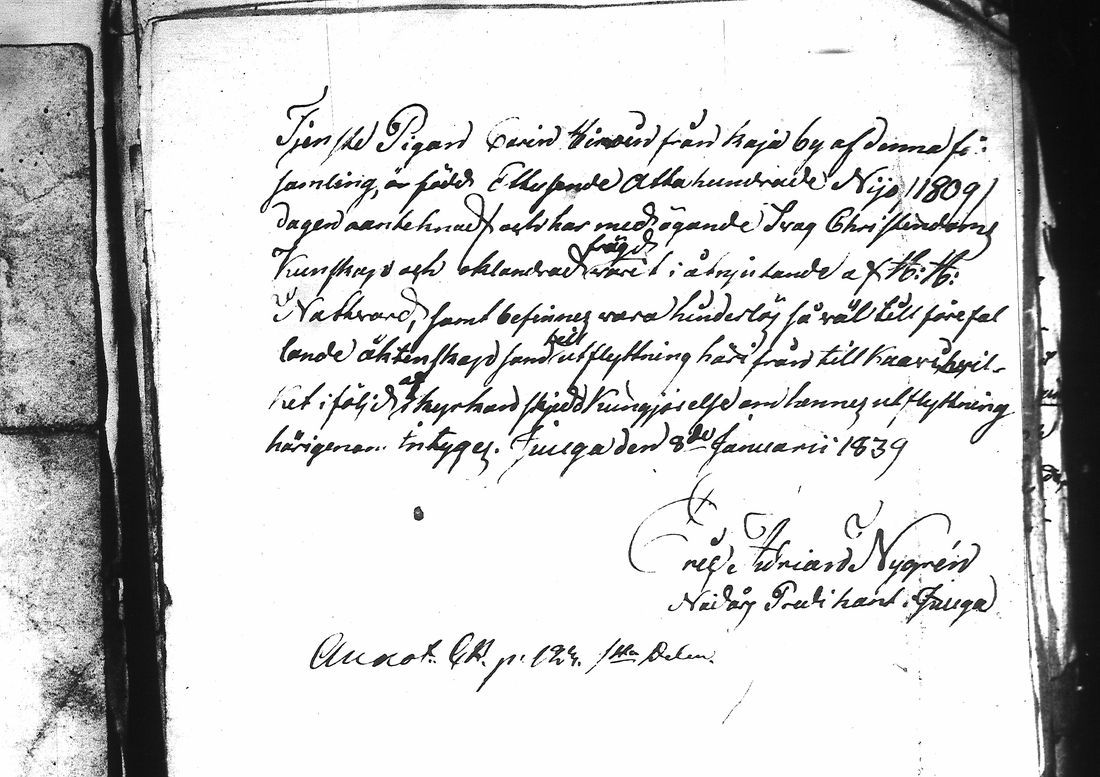 Tjenste Pigan Carin från Kaja by af denna fö:
samling, är född Ettusende Åttahundrade Nijo (1809)
dagen oanteknad, och har medögande Svag Christendoms
Kunskap och oklandrad frägd varit i åtnjutande af H: H:
Nattvard, samt befinnes vara hinderlös så väl till förefal
lande äktenskap som till utflyttning härifrån till hvil-
ket i följd af i kyrkan skjedd Kungjörelse om hennes utflyttning
härigenom intyges. Juuga den 8de Januarii 1839
Eric Adrian Nygrén
Nådårs Predikant i Juuga
Annot. p. 123. 1sta Delen.